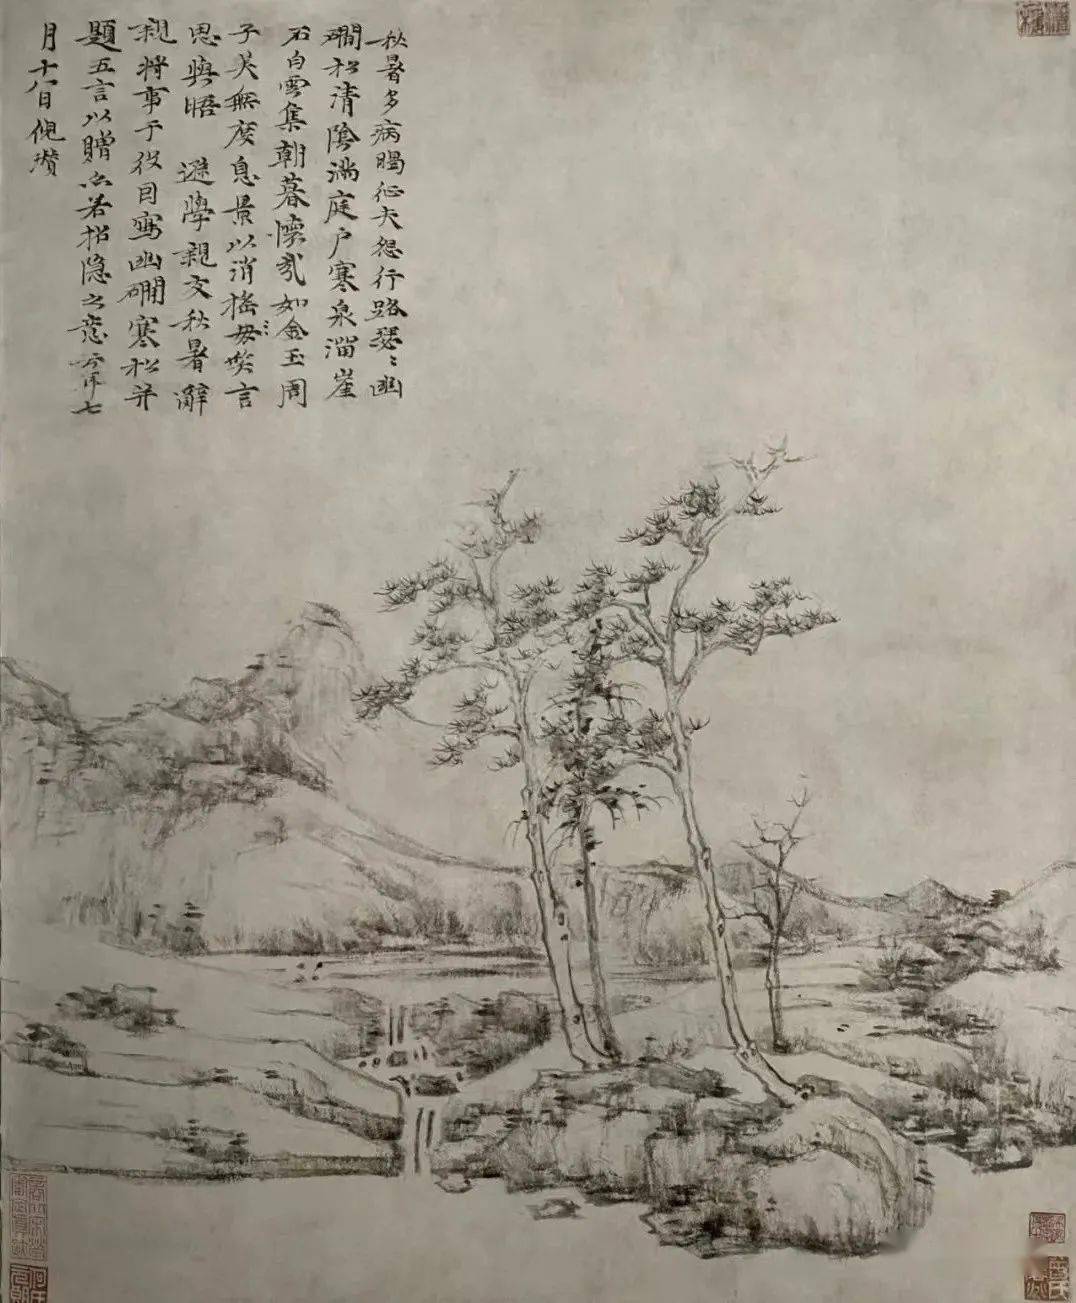 秋暑多病暍征夫怨行路瑟〻幽
磵松清陰滿庭戶寒泉溜崖
石白雲集朝暮懷哉如金玉周
子美無度息景以消搖毋𭒀言
思與晤 遜學親友秋暑辭
親將事于役因寫幽磵寒松并
題五言以贈亦若招隱之意云耳七
月十八日倪瓚